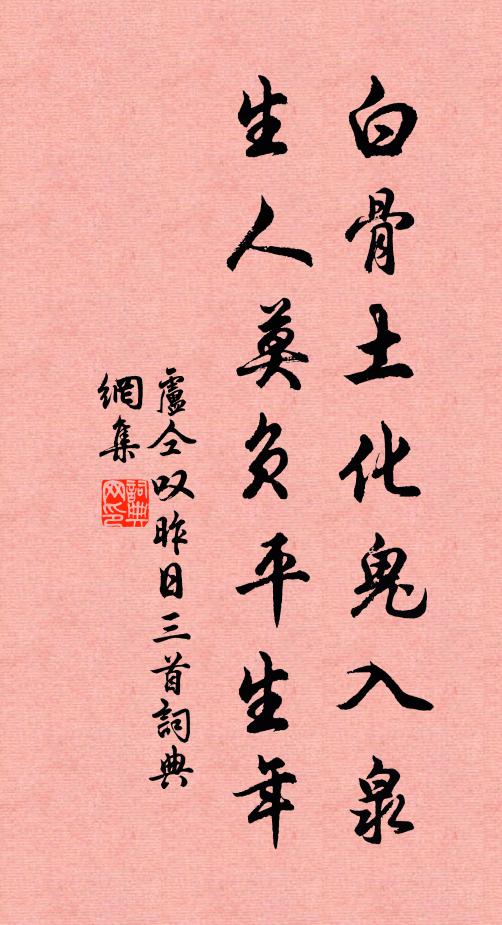 白骨土化鬼入泉
生人莫负平生年
盧仝叹昨日三首詞典
網集
詞典
网印